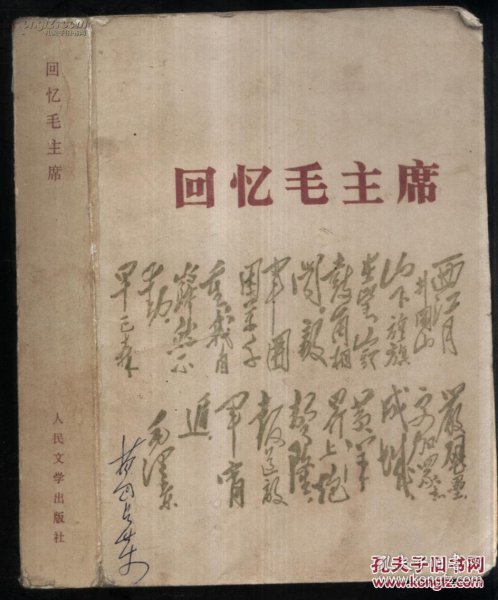 回忆毛主席
人民文学出版社
回忆毛主席
西江月
井冈山
山下旌旗
在望山头
鼓角相
闻敌
军围
困万千
重我自
岿然不
动
早已森
严壁垒
更加众志
成城
黄洋
界上炮
声隆
报道敌
军宵
遁
毛泽东
孔夫子旧书网